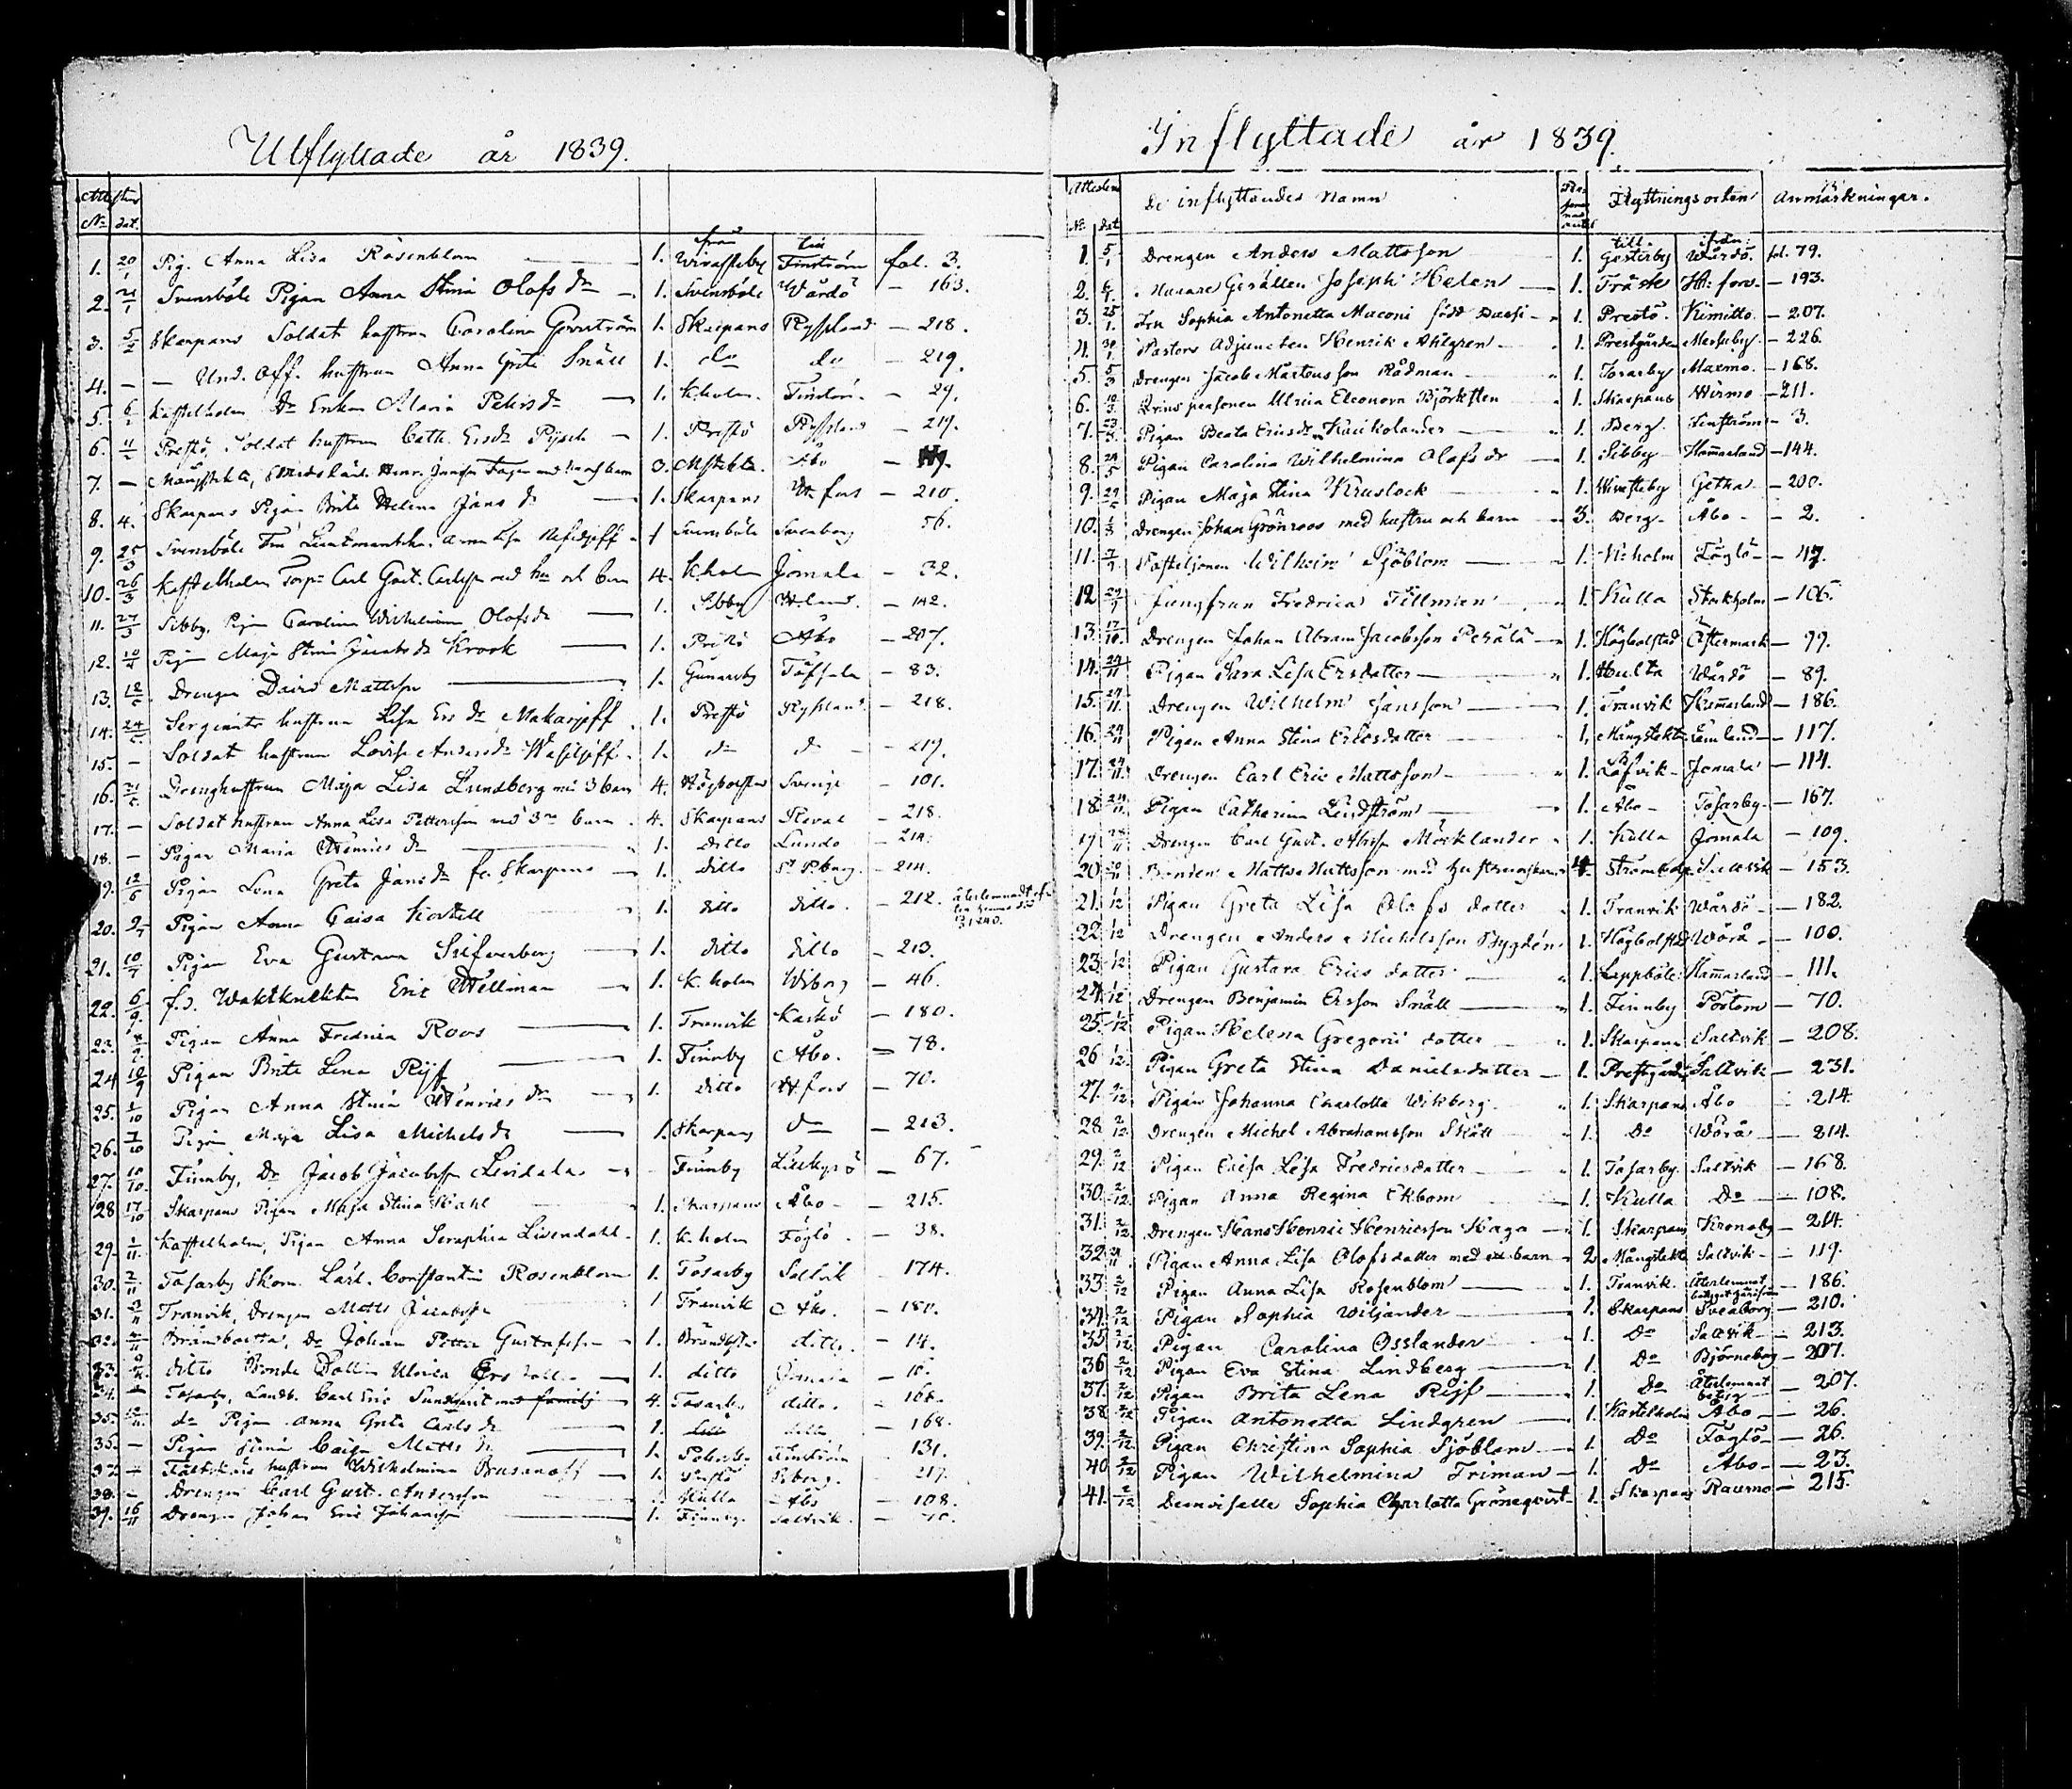 Utflyttade år 1839.
Attester
No dat.
från till
1. 20/1 Pig. Anna Lisa Rosenblom 1. Wivasteby Finström fol. 3.
2. 21/1 Svensböle Pigan Anna Stina Olofs dr 1. Svensböle Wårdö - 163.
3. 5/2 Skarpans Soldat hustrun Carolina 1. Skarpans Ryssland - 218.
4. - - Und. Off. hustrun Anna Greta Snäll 1. do do - 219.
5. Kastelholm Maria Peters dr 1. Kholm. Finström - 29.
6. Prestö, Soldat hustrun Cath. Ersdr 1. Prestö Ryssland - 219.
7. - Mångsteckta, 3. Mstekta. Åbo
8. 4. Skarpans Pigan Brita Helena Jans dr 1. Skarpans H:fors - 210.
9. 25/3 Svensböle Anna Lisa 1 Svensböle Sveaborg 56.
10. 26/3 Kastelholm Torp. Carl Gust. med hu och barn 4. Kholm Jomala - 32.
11. 27/3 Sibby. Pigan Carolina Wilhelmina Olofsdr 1. Sibby H:land. - 142.
12. Pigan Maja Stina Jacobs dr Krook 1. Prestö Åbo - 207.
13. Drengen David Mattsson 1. Gunnarsby Töfsala - 83.
14. 24/5 hustrun Lisa Ers dr Makarjeff 1. Prestö Ryssland - 218.
15. - Soldat hustrun Lovisa Andersdr Wasiljeff 1. do do - 219.
16. Drenghustrun Maja Lisa Lundberg med 3 barn 4. Högbolstad Sverige - 101.
17. - Soldat hustrun Anna Lisa Pettersson med 3ne barn 4. Skarpans Reval - 218.
18. - Pigan Maria Henrics dr 1. Ditto Lundo - 214.
19. 12/6 Pigan Lena Greta Jansdr fr. Skarpans 1. Ditto St P:burg - 214.
20. Pigan Anna Caisa 1. ditto ditto. - 212.
21. 10/7 Pigan Eva Gustava Silfverberg 1. ditto ditto - 213.
22. 6/9 f.d. Waktknekten Eric Hellman 1. K.holm Wiborg - 46.
23. Pigan Anna Fredrica Roos 1. Tranvik Kaskö - 180.
24 Pigan Brita Lena Rijf 1. Finnby Åbo. - 78.
25. 1/10 Pigan Anna Stina Henrics dr 1. ditto H:fors - 70.
26. 7/10 Pigan Maja Lisa Michelsdr 1. Skarpans do - 213.
27. 10/10 Finnby, Dr Jacob Jacobsson Lindala Finnby - 67.
28 17/10 Skarpans Pigan Maja Stina Stahl 1. Skarpans Åbo - 215.
29. 1/11 Kastelholm, Pigan Anna Seraphia 1. K.holm Föglö - 38.
30. 2/11 Tosarby Skom. Carl Constantin Rosenblom 1. Tosarby Saltvik - 174.
31. Tranvik, Drengen Matts Jacobsson 1 Tranvik Åbo. - 180.
32. Brändbolstad, Dr Johan Petter Gustafsson 1. ditto - 14.
33. ditto Bonde Dottern Ulrica Ers dotter 1. ditto Jomala
34. Tosarby, Landb. Carl Eric Sundqvist med familj 4. Tosarby ditto.
35. do Pigan Anna Greta Carls dr 1. ditto ditto - 168.
36. - Pigan Stina Caisa Matts dr 1. Finström - 131.
37. - hustrun Wilhelmina 1. Prestö P:borg. 217.
38. - Drengen Carl Gust. Andersson Kulla Åbo - 108.
39. 16/11 Drengen Johan Eric Johansson 1. Finnby Saltvik.
Inflyttade år 1839.
Attesten
No dat
De inflyttandes Namn Flyttningsorten Anmärkningar.
till från
1. 5/1 Drengen Anders Mattsson 1. Gesterby Wårdö. fol. 79.
2. Josephi Helen 1. Träsk H:fors - 193.
3. 25/1 Fru Sophia Antonetta Maconi född 1. Prestö. Kimitto. - 207.
4. 30/1 Pastors Adjuncten Henrik Ahlgren 1. Prestgården - 226.
5. 5/3 Drengen Jacob Mårtensson Rådman 1. Tosarby Maxmo. - 168.
6. Ulrica Eleonora Björksten 1. Skarpans - 211.
7. Pigan Beata Ericsdr 1. Berg Finström - 3.
8. Pigan Carolina Wilhelmina Olofs dr 1. Sibby Hammarland - 144.
9. Pigan Maja Stina Kruslock 1. Wivasteby Getha - 200.
10. Drengen Johan Grönroos med hustru och barn 3. Berg Åbo - 2.
11. Postiljonen Wilhelm Sjöblom 1. K:holm Föglö - 47.
12 Jungfrun Fredrica Tillman 1. Kulla Stockholm - 106.
13. 17/10 Drengen Johan Abram Jacobsson 1. Högbolstad Östermark - 99.
14. 24/11 Pigan Sara Lisa Ersdotter 1. Hulta Wårdö - 89.
15. 24/11 Drengen Wilhelm Jansson 1. Tranvik Hammarland - 186.
16. 24/11 Pigan Anna Stina Ericsdotter 1. Mångstekta Lemland - 117.
17. 24/11 Drengen Carl Eric Mattsson 1. Löfvik Jomala - 114.
18. 24/11 Pigan Catharina Lindström 1. Åbo - Tosarby - 167.
19 Drengen Carl Gust. Mörklander 1. Kulla Jomala - 109.
20. Bonden Matts Mattsson med hustru och barn 4. Saltvik - 153.
21. 1/12 Pigan Greta Lisa Olofs dotter 1. Tranvik Wårdö - 182.
22. 1/12 Drengen Anders Michelsson Bygdén 1. Högbolstad Wörå - 100.
23. 1/12 Pigan Gustava Erics dotter 1. Lappböle Hammarland - 111.
24. 1/12 Drengen Benjamin Ersson Snäll 1. Finnby Pörtom - 70.
25. 1/12 Pigan Helena Gregorii dotter 1. Skarpans Saltvik - 208.
26 1/12 Pigan Greta Stina Danielsdotter 1. Prestgården Saltvik - 231.
27. 2/12 Pigan Johanna Charlotta Wikberg 1. Skarpans Åbo - 214
28. 2/12 Drengen Michel Abrahamsson Skått 1. Do Wörå - 214.
29. 2/12 Pigan Caisa Lisa Fredricsdotter 1. Tosarby Saltvik - 168.
30. 2/12 Pigan Anna Regina Ekbom 1. Kulla Do - 108.
31. 2/12 Drengen Hans Henric Henricsson Haga 1. Skarpans Kronoby - 214.
32. 24/11 Pigan Anna Lisa Olofsdotter med ett barn 2. Mångstekta Saltvik - 119.
33. 2/12 Pigan Anna Lisa Rosenblom 1. Tranvik Återlemnat - 186.
34. 2/12 Pigan Sophia Wiljander 1. Skarpans Sveaborg - 210.
35 2/12 Pigan Carolina Osslander 1. Do Saltvik - 213.
36 2/12 Pigan Eva Stina Lindberg 1. Do Björneborg - 207.
37. 2/12 Pigan Brita Lena Rijf 1. Do Återlemnat betyg - 207.
38. 2/12 Pigan Antonetta Lindgren 1. Kastelholm Åbo - 26.
39. 2/12 Pigan Christina Sophia Sjöblom 1. Do Föglö - 26.
40 2/12 Pigan Wilhelmina Friman 1. Do Åbo - 23.
41. 2/12 Demoiselle Sophia Charlotta Grönqvist 1. Skarpans Raumo - 215.